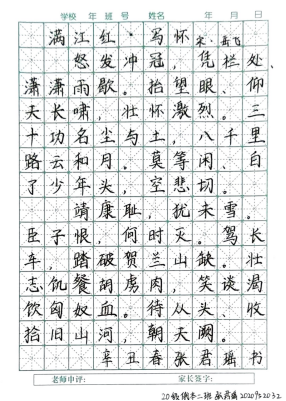 学校 年 班 号 姓名 年 月 日
满江红·写怀
宋·岳飞
怒发冲冠,凭栏处、
潇潇雨歇。抬望眼、仰
天长啸,壮怀激烈。三
十功名尘与土,八千里
路云和月。莫等闲、白
了少年头,空悲切。
靖康耻,犹未雪。
臣子恨,何时灭。驾长
车,踏破贺兰山缺。壮
志饥餐胡虏肉,笑谈渴
饮匈奴血。待从头、收
拾旧山河,朝天阙。
辛丑春张君瑶书
老师申评: 家长签字:
20级 二班